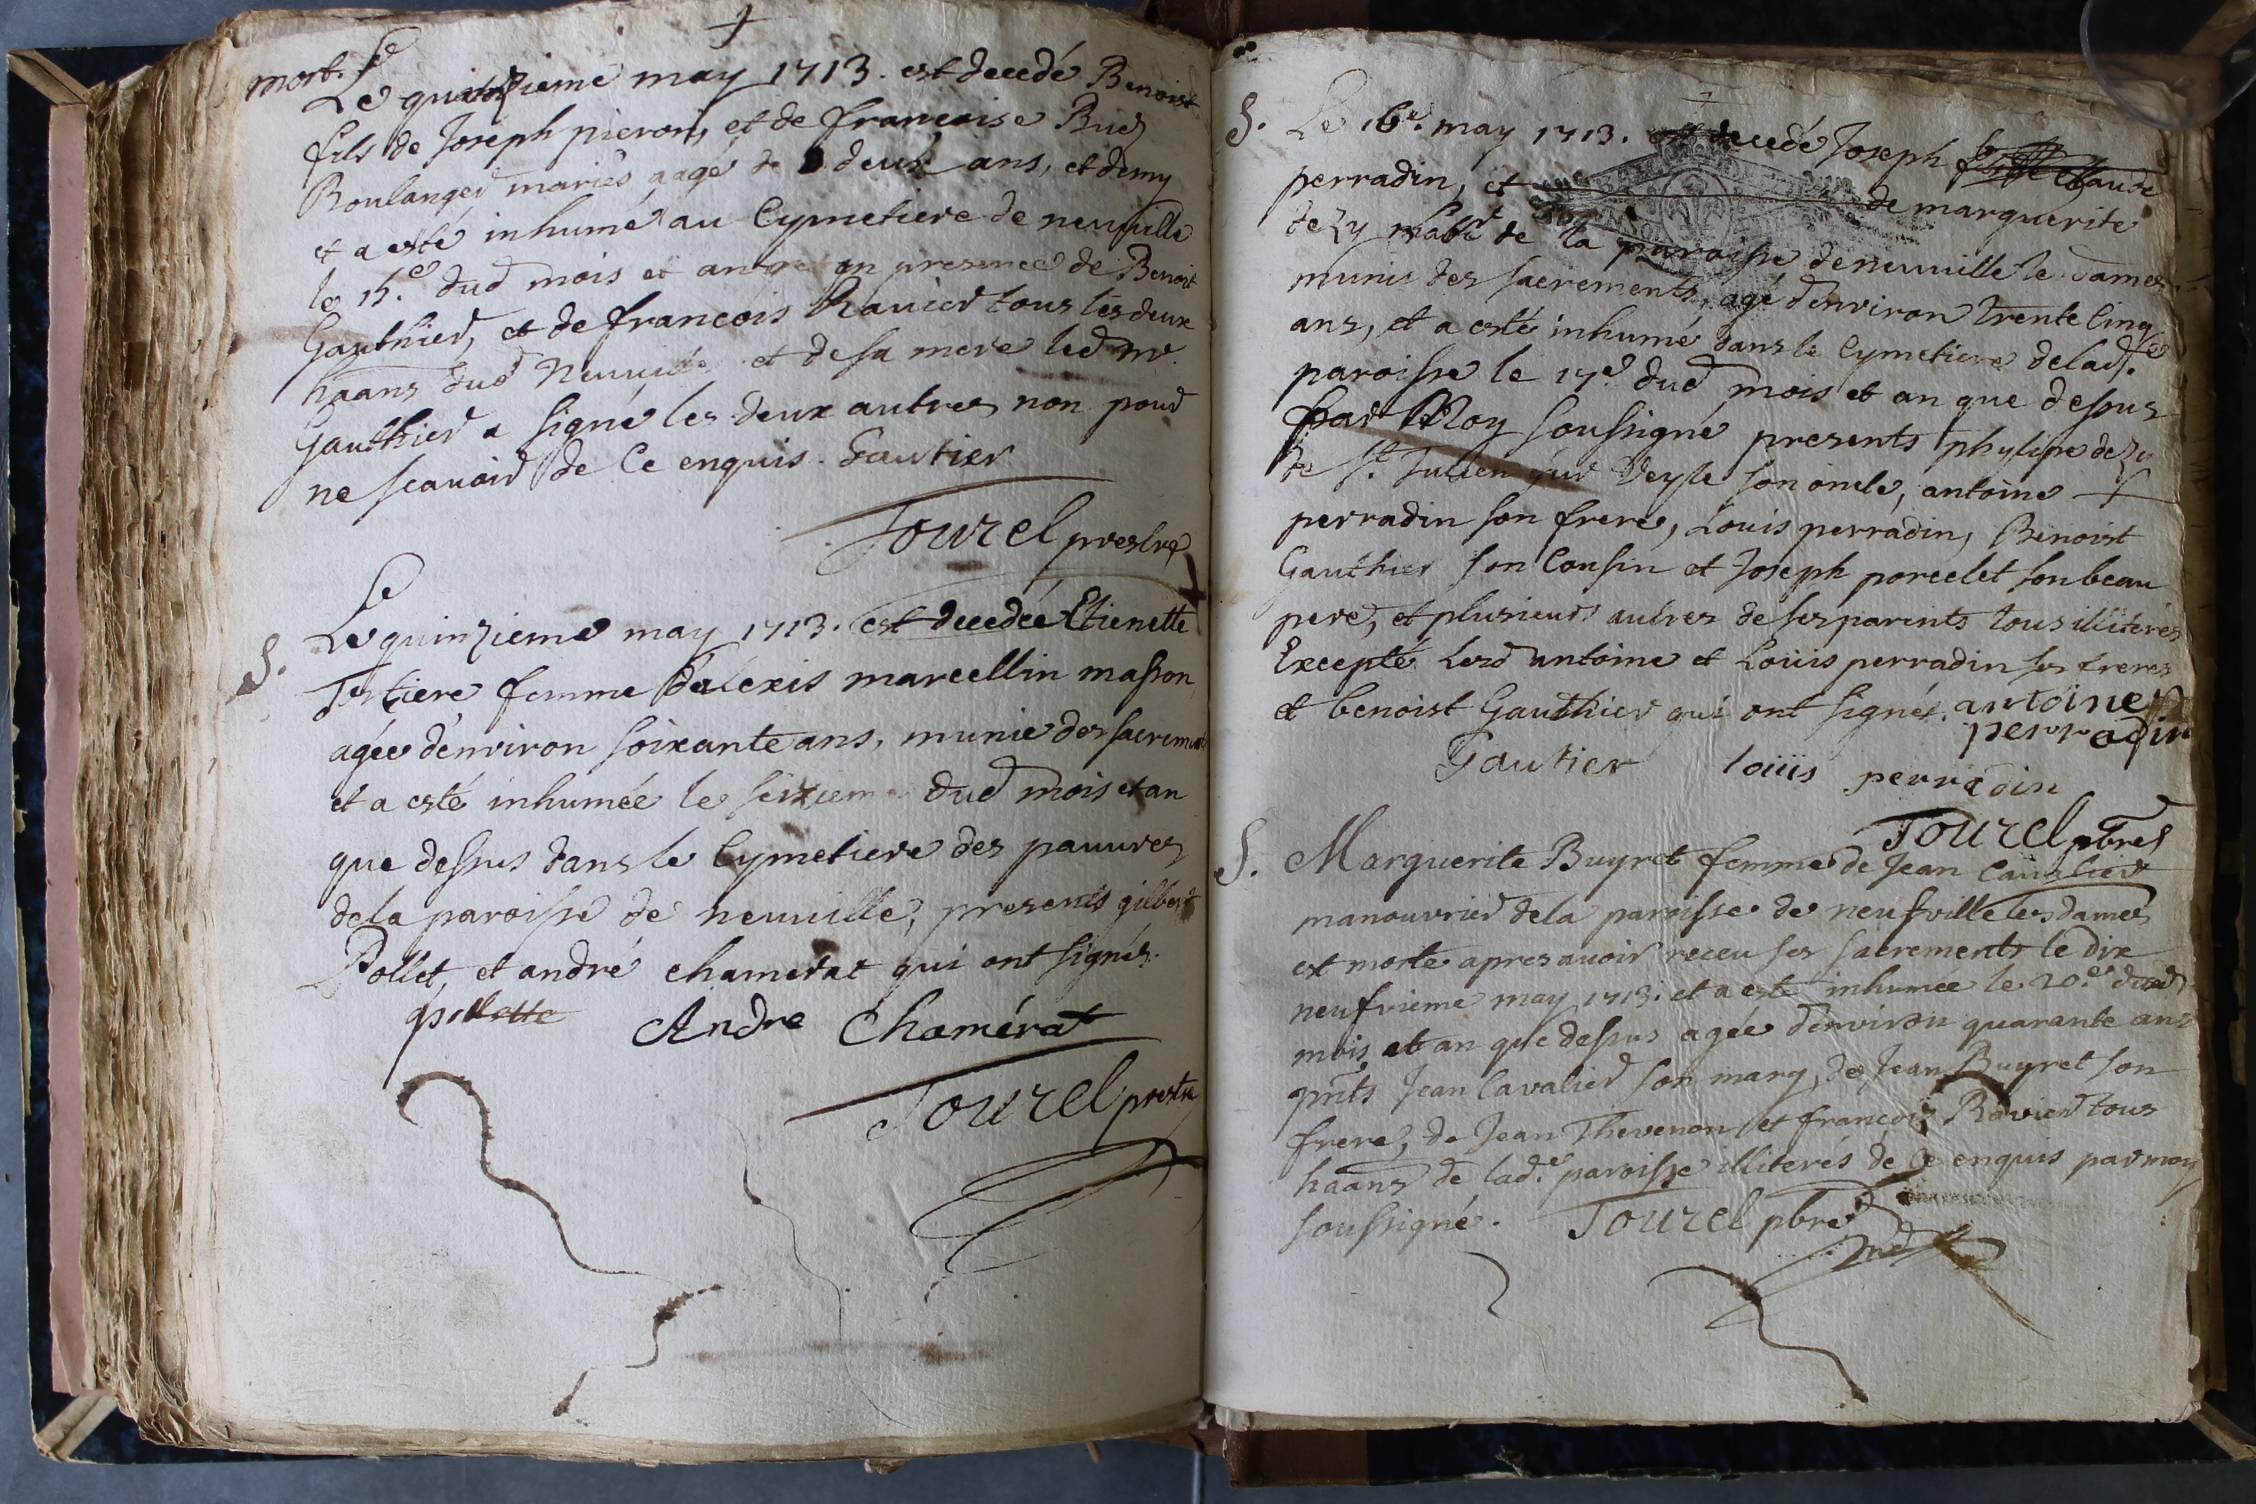 mort.
Le quinzieme may 1713. est decedé Benoist
fils de Joseph pieron, et de francoise Bués
Boulanger mariés aagé de deux ans, et demy
et a esté inhumé au Cymetiere de neuville
le 15.e dud mois et an en presence de Benoit
Gauthier, et de francois Ravier tous les deux
haans dud Neuville et de sa mere led
Gauthier a signé les deux autres non pour
ne scavoir de Ce enquis. Gautier
Tourel prestre
S. Le quinzieme may 1713. est decedée Etienette
Tertiere femme d'alexis marcellin masson
agée d'environ soixante ans, munie des sacrements
et a esté inhumée le seizieme dud mois et an
que dessus dans le Cymetiere des pauvres
de la paroisse de neuville, presents gilbert
Pollet, et andré chamerat qui ont signés.
gpollette
Andre Chamérat
Tourel prestre
S. Le 16e. may 1713. est decedé Joseph
perradin, et de marguerite
de Zy habt de la paroisse de neuville le dames
munis des sacrements, agé d'environ trente Cinq
ans, et a esté inhumé dans le Cymetiere de lad.e
paroisse le 17e dud mois et an que dessus
par Moy soussigné presents phylipe de Zy
de St. Julien sur Veyle son oncle, antoine
perradin son frere, Louis perradin, Benoist
Gauthier son Cousin et Joseph porcelet son beau
pere, et plusieurs autres de ses parents tous illiterés
Excepté lesd antoine et Loüis perradin ses freres
et benoist Gauthier qui ont signés. antoine
perradin
Gautier loüis perradin
Tourel pbre
S. Marguerite Buyret femme de Jean Cavalier
manouvrier de la paroisse de neufville les dames
est morte apres avoir receu ses sacrements le dix
neufvieme may 1713. et a esté inhumée le 20.e dud
mois et an que dessus agée d'environ quarante ans
pnts Jean Cavalier son mary, de Jean Buyret son
frere, de Jean Thevenon et francois Ravier tous
haans de lad.e paroisse illiterés de Ce enquis par moy
soussigné. Tourel pbre